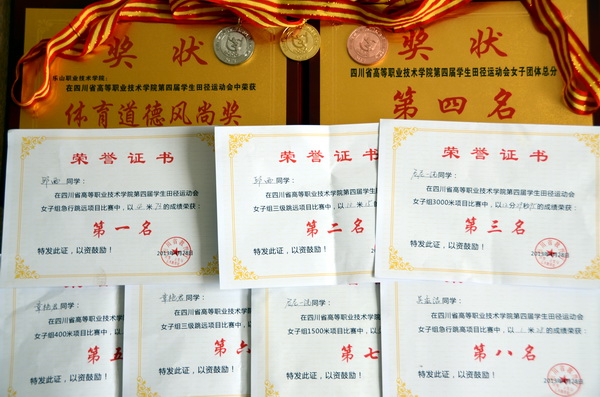 奖状
乐山职业技术学院：
在四川省高等职业技术学院第四届学生田径运动会中荣获
体育道德风尚奖
奖状
四川省高等职业技术学院第四届学生田径运动会女子团体总分
第四名
荣誉证书
同学：
在四川省高等职业技术学院第四届学生田径运动会
女子组急行跳远项目比赛中，以 米 的成绩荣获：
第一名
特发此证，以资鼓励！
荣誉证书
同学：
在四川省高等职业技术学院第四届学生田径
女子组三级跳远项目比赛中，以 米
第二名
特发此证，以资鼓励！
荣誉证书
同学：
在四川省高等职业技术学院第四届学生田径运动会
女子组3000米项目比赛中，以 分 秒 的成绩荣获：
第三名
特发此证，以资鼓励！
同学：
在四川省高等职业技术学院第四
女子组400米项目比赛中，以
第五
特发此证，以资鼓励！
同学：
在四川省高等职业技术学院第四
女子组三级跳远项目比赛中，
第六
特发此证，以资鼓励！
同学：
在四川省高等职业技术学院第四届
女子组1500米项目比赛中，以
第七
特发此证，以资鼓励！
同学：
在四川省高等职业技术学院第四届学生田径运动会
女子组急行跳高项目比赛中，以 米 的成绩荣获：
第八名
特发此证，以资鼓励！